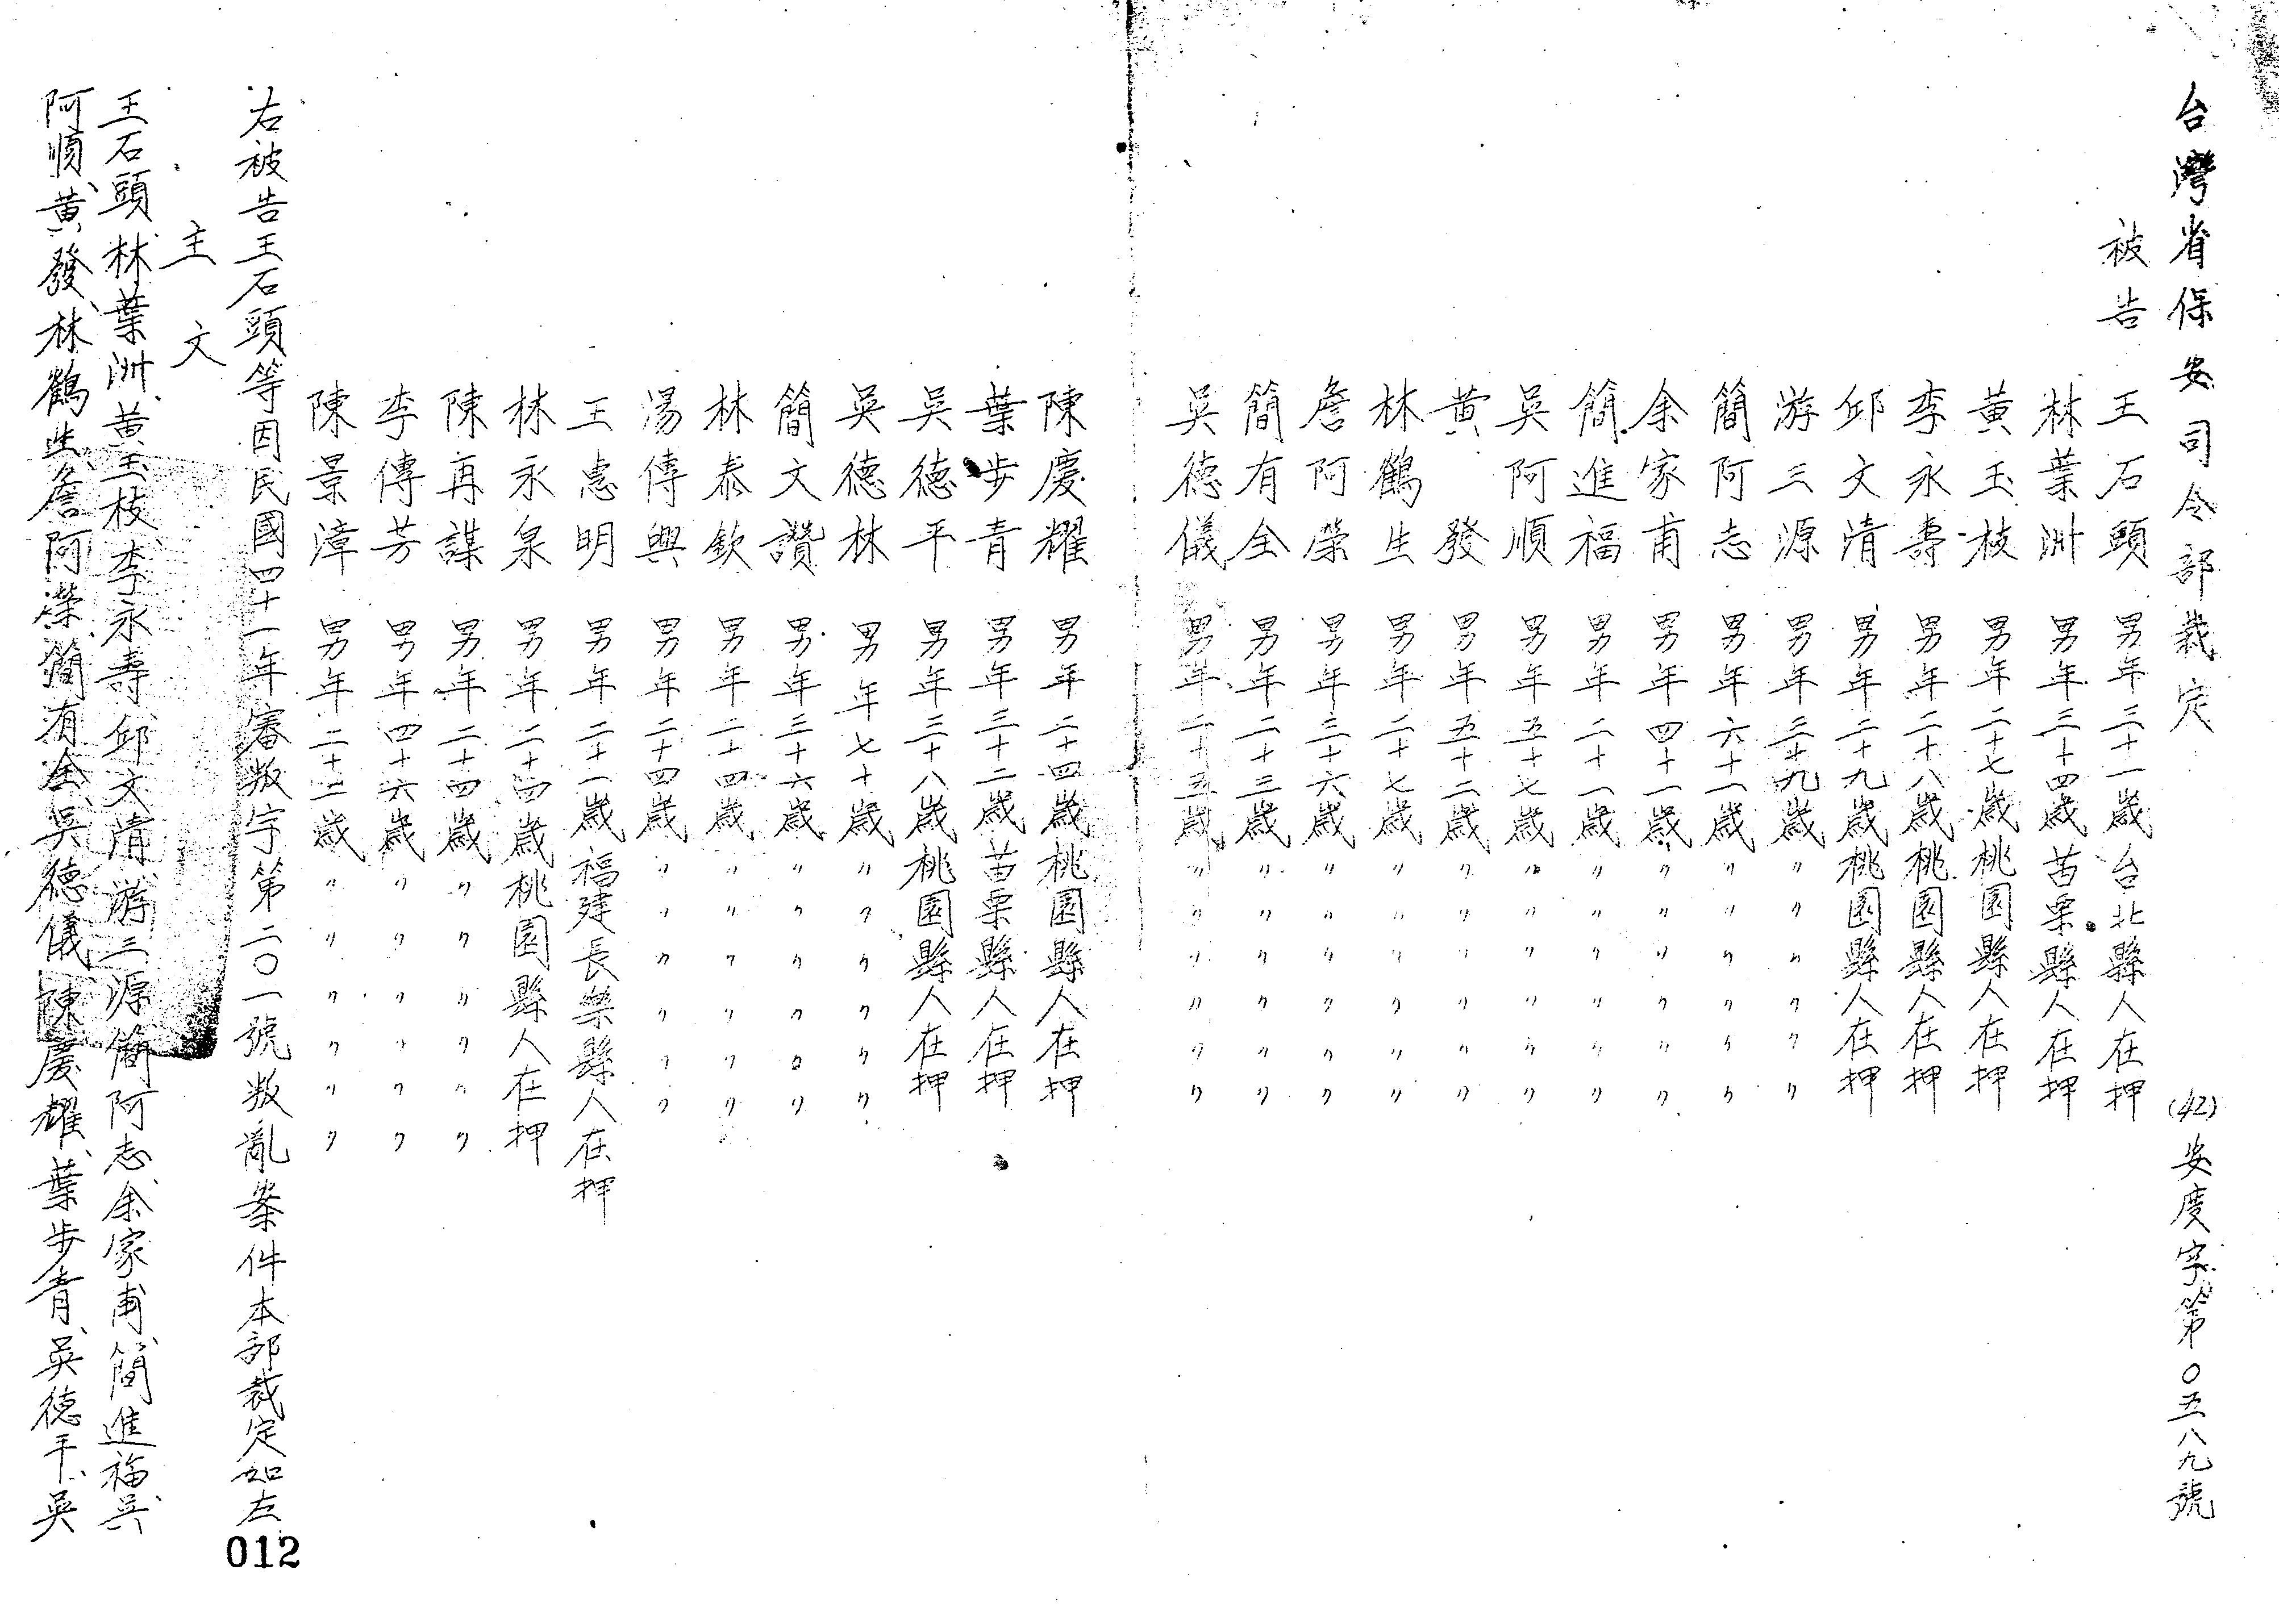 台灣省保安司令部裁定 (42)安度字第〇五八九號
被告 王石頭 男年三十一歲台北縣人在押
林葉洲 男年三十四歲苗栗縣人在押
黃玉枝 男年二十七歲桃園縣人在押
李永壽 男年二十八歲桃園縣人在押
邱文清 男年二十九歲桃園縣人在押
游三源 男年三十九歲〃〃〃〃〃
簡阿志 男年六十一歲〃〃〃〃〃
余家甫 男年四十一歲〃〃〃〃〃
簡進福 男年二十一歲〃〃〃〃〃
吳阿順 男年五十七歲〃〃〃〃〃
黃發 男年五十二歲〃〃〃〃〃
林鶴生 男年二十七歲〃〃〃〃〃
詹阿榮 男年三十六歲〃〃〃〃〃
簡有全 男年二十三歲〃〃〃〃〃
吳德儀 男年二十五歲〃〃〃〃〃
陳慶耀 男年二十四歲桃園縣人在押
葉步青 男年三十二歲苗栗縣人在押
吳德平 男年三十八歲桃園縣人在押
吳德林 男年七十歲〃〃〃〃〃
簡文讚 男年三十六歲〃〃〃〃〃
林泰欽 男年二十四歲〃〃〃〃〃
湯傳興 男年二十四歲〃〃〃〃〃
王惠明 男年二十一歲福建長樂縣人在押
林永泉 男年二十四歲桃園縣人在押
陳再謀 男年二十四歲〃〃〃〃〃
李傳芳 男年四十六歲〃〃〃〃〃
陳景漳 男年二十二歲〃〃〃〃〃
右被告王石頭等因民國四十一年審叛字第二〇一號叛亂案件本部裁定如左
主文
王石頭、林葉洲、黃玉枝、李永壽、邱文清、游三源、簡阿志、余家甫、簡進福、吳
阿順、黃發、林鶴生、詹阿榮、簡有全、吳德儀、陳慶耀、葉步青、吳德平、吳
012